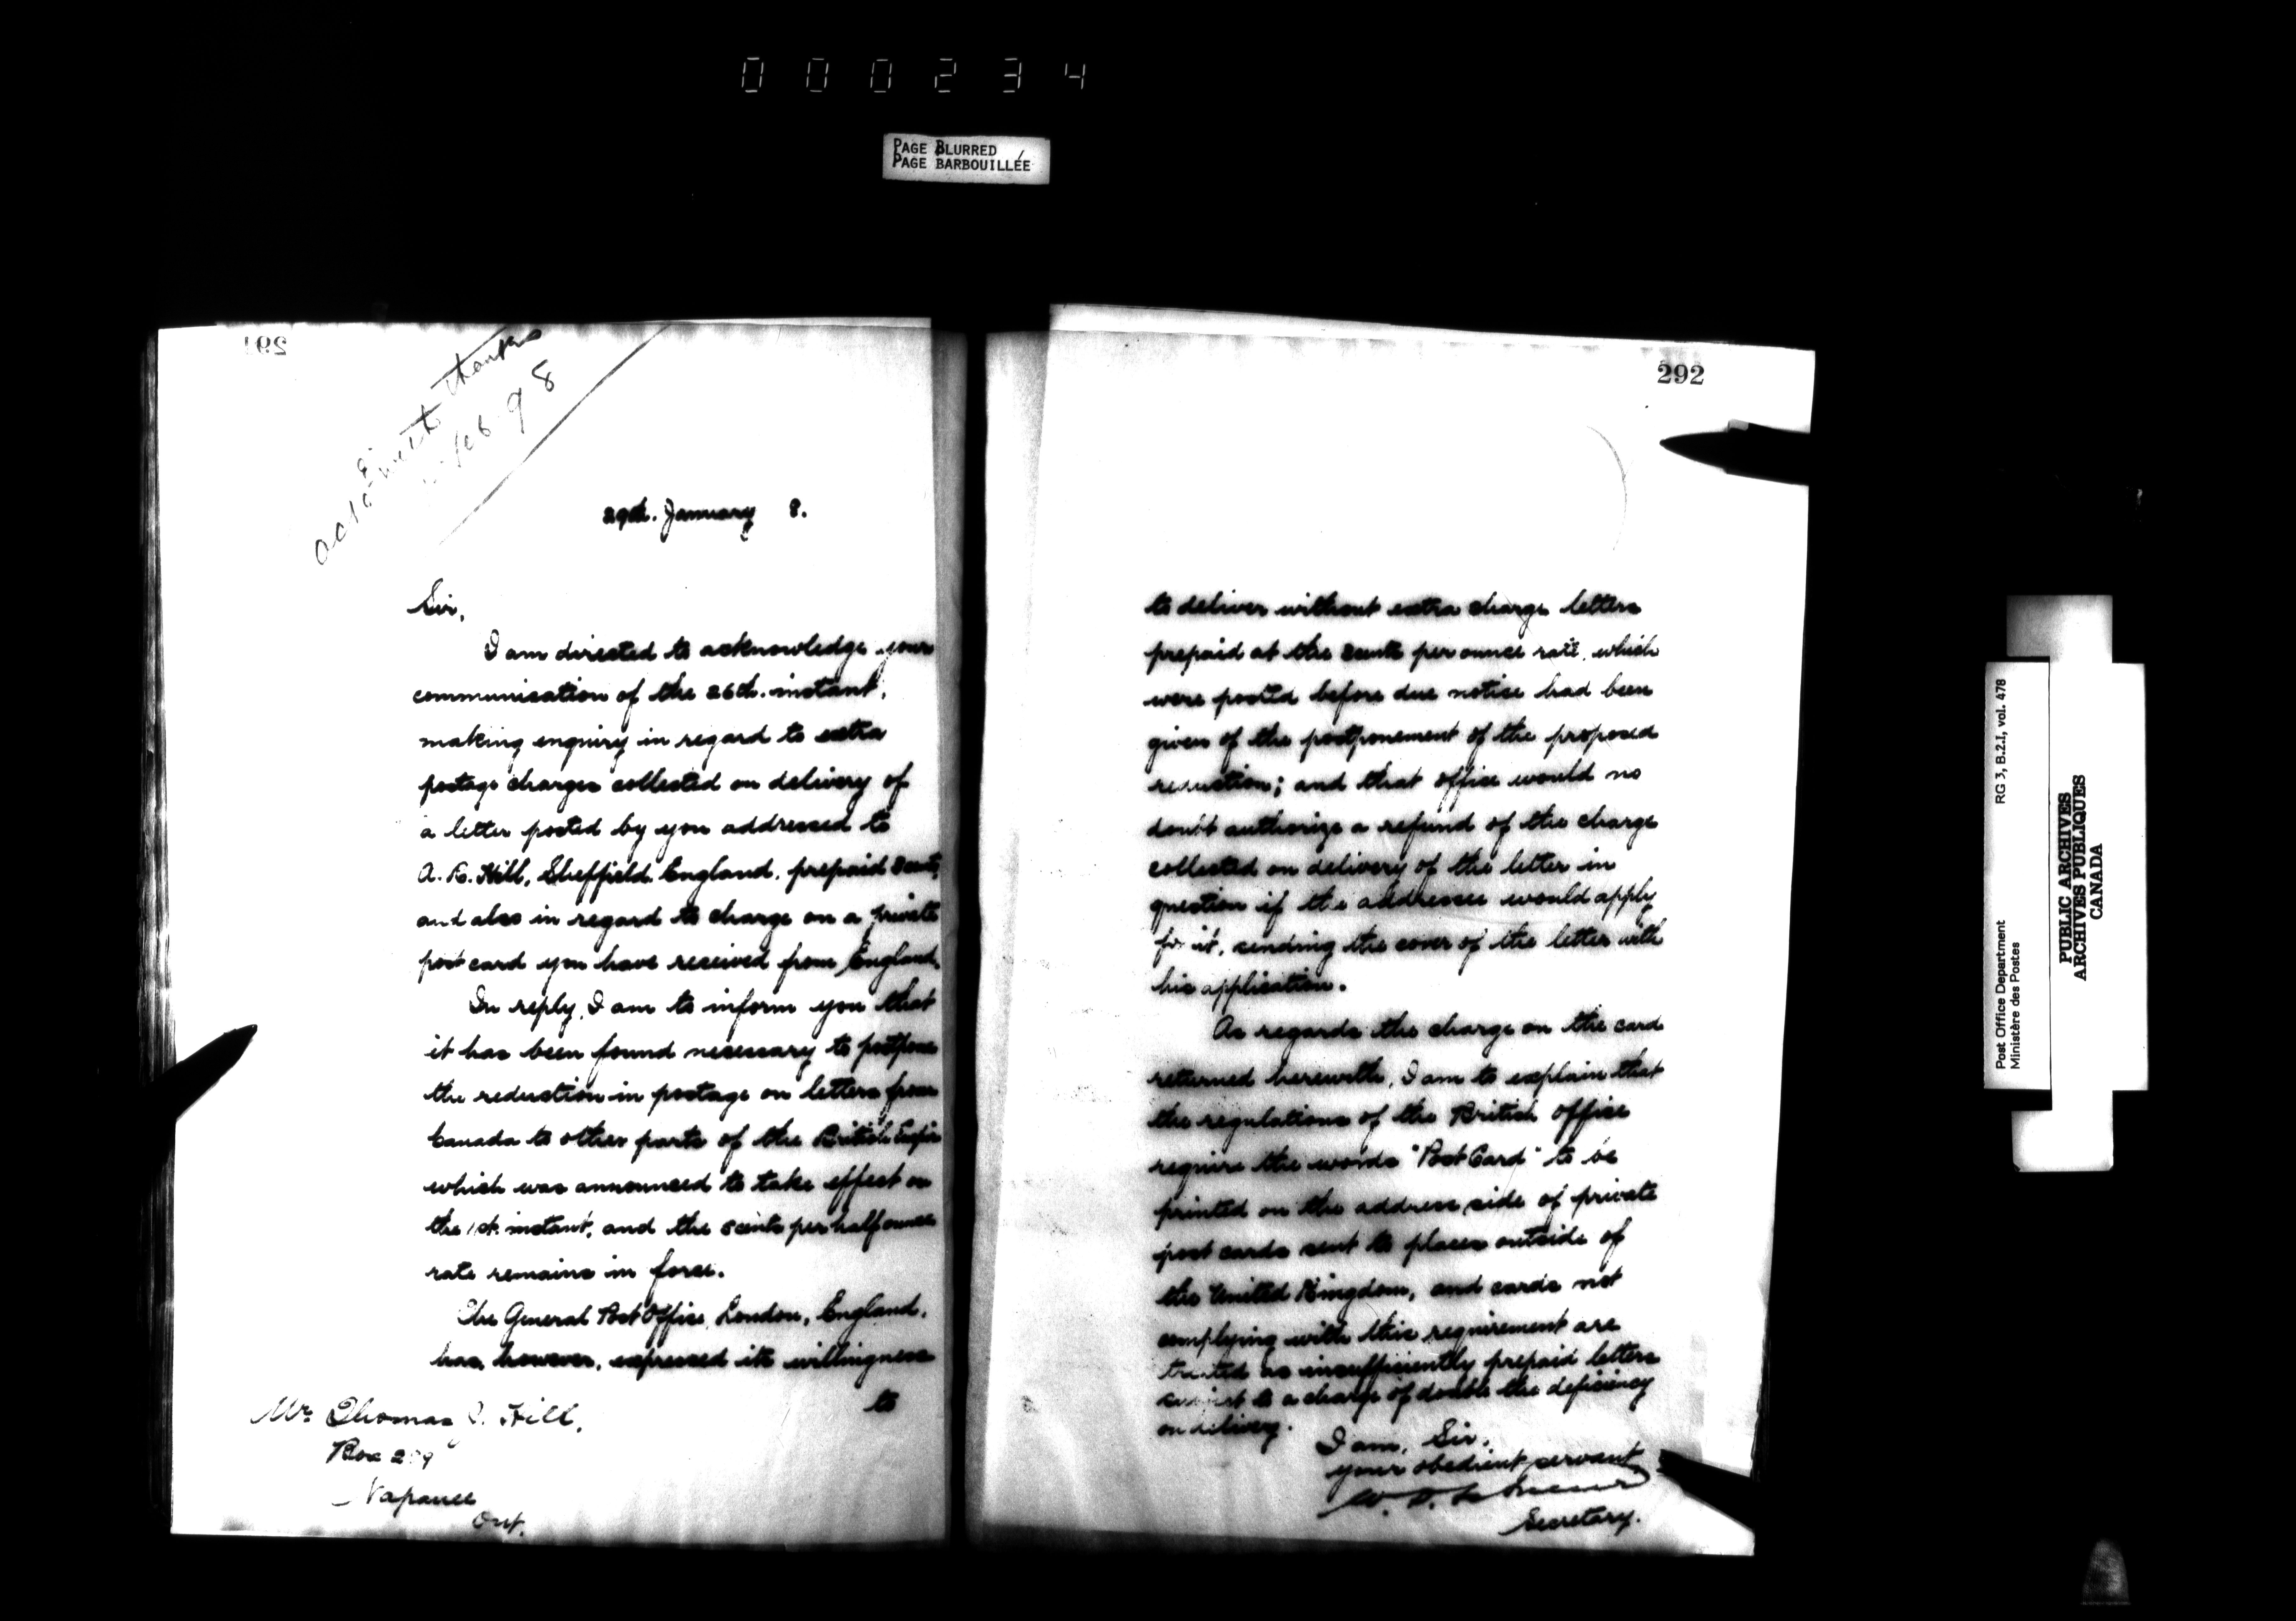 000234
PAGE BLURRED
PAGE BARBOUILLÉE
291
with thanks
Feb 98
29th. January 8.
Sir,
I am directed to acknowledge your
communication of the 26th. instant,
making enquiry in regard to extra
postage charges collected on delivery of
a letter posted by you addressed to
A. R. Hill, Sheffield, England, prepaid 3 cents,
and also in regard to charge on a private
post card you have received from England.
In reply, I am to inform you that
it has been found necessary to postpone
the reduction in postage on letters from
Canada to other parts of the British Empire
which was announced to take effect on
the 1st. instant, and the 5 cents per half ounce
rate remains in force.
The General Post Office, London, England,
has, however, expressed its willingness
to
Mr. Thomas J. Hill,
Box
Napanee
Ont.
292
to deliver without extra charge letters
prepaid at the 3 cents per ounce rate, which
were posted before due notice had been
given of the postponement of the proposed
reduction; and that office would no
doubt authorize a refund of the charge
collected on delivery of the letter in
question if the addressee would apply
for it, sending the cover of the letter with
his application.
As regards the charge on the card
returned herewith, I am to explain that
the regulations of the British Office
require the words "Post Card" to be
printed on the address side of private
post cards sent to places outside of
the United Kingdom, and cards not
complying with this requirement are
treated as insufficiently prepaid letters
subject to a charge of double the deficiency
on delivery.
I am, Sir,
your obedient servant
W. D. LeSueur
Secretary.
Post Office Department
Ministère des Postes
RG 3, B.2.I, vol. 478
PUBLIC ARCHIVES
ARCHIVES PUBLIQUES
CANADA